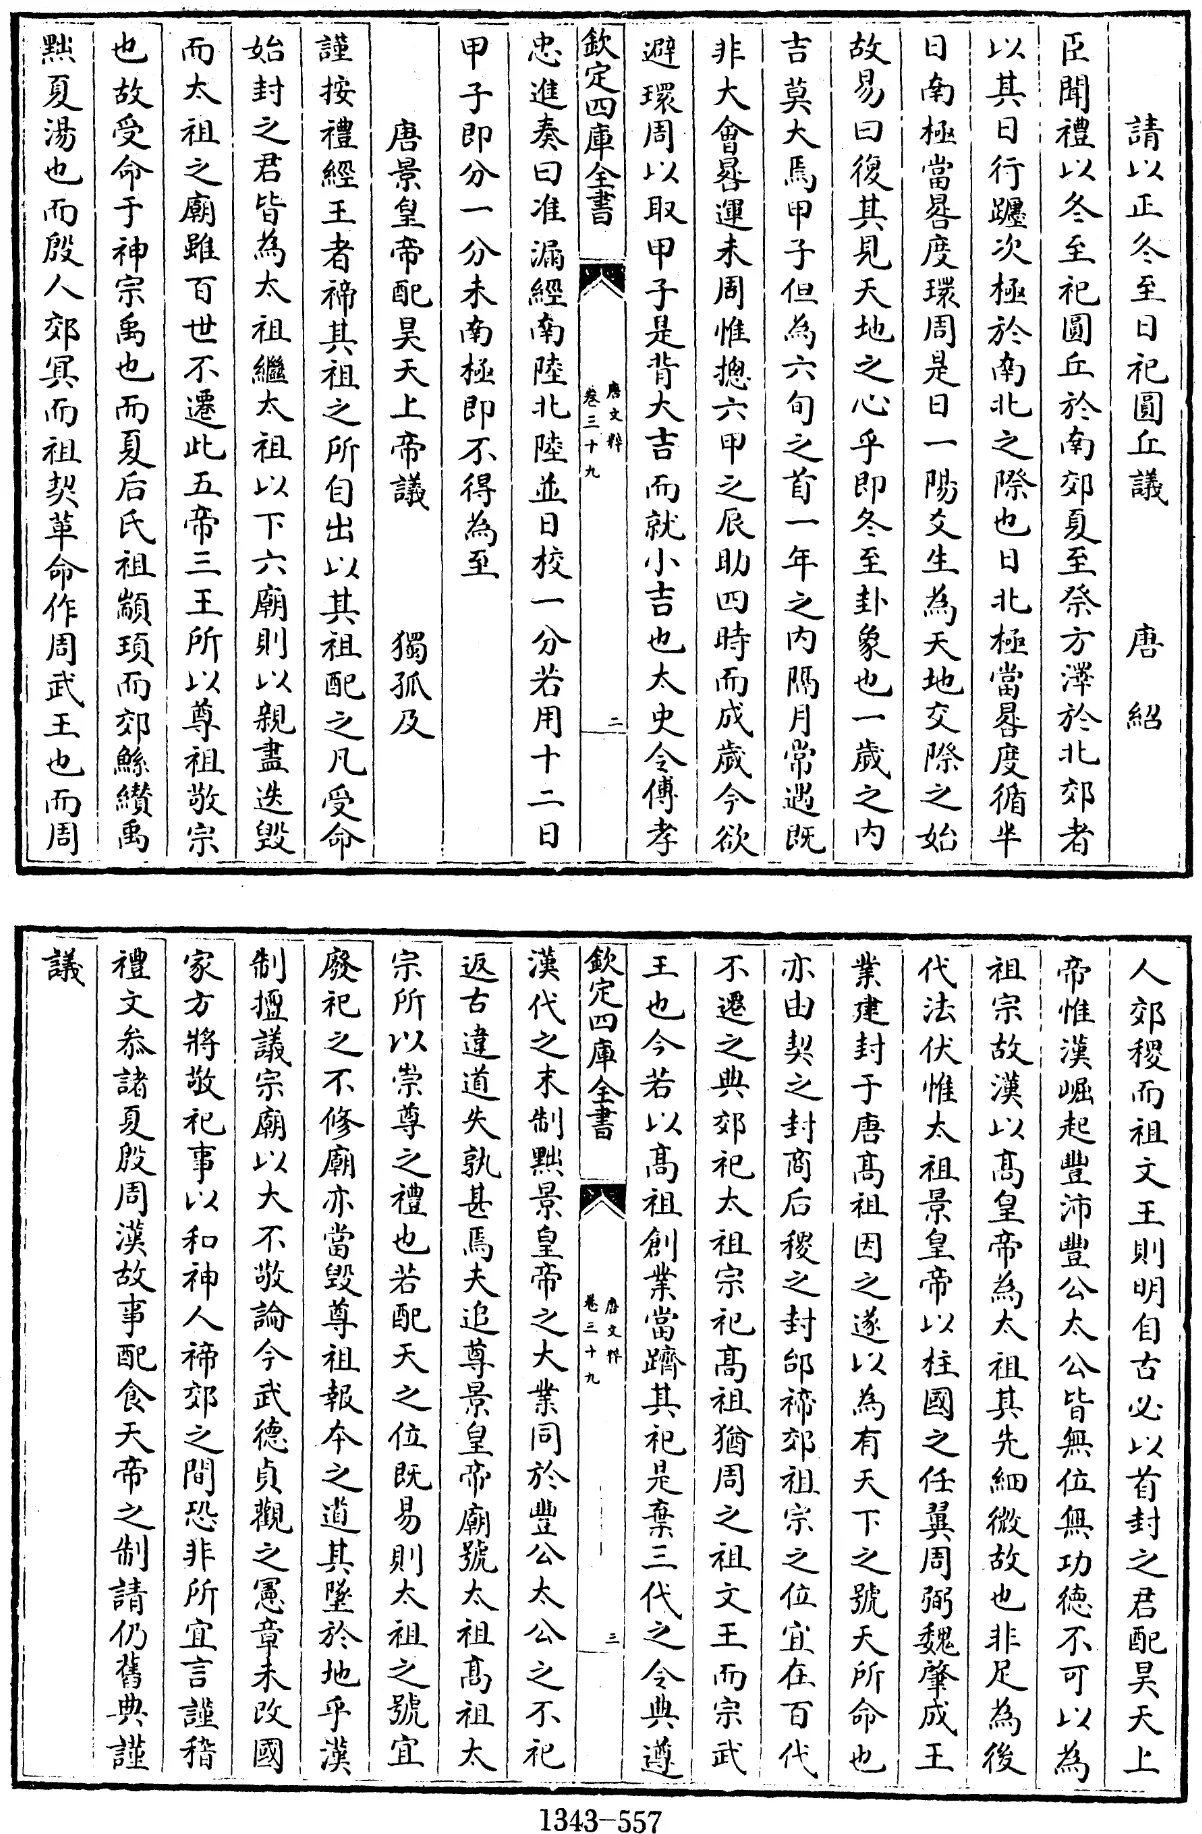 請以正冬至日祀圓丘議 唐紹
臣聞禮以冬至祀圓丘於南郊夏至祭方澤於北郊者
以其日行躔次極於南北之際也日北極當晷度循半
日南極當晷度環周是日一陽爻生為天地交際之始
故易曰復其見天地之心乎即冬至卦象也一歲之内
吉莫大焉甲子但為六旬之首一年之内隔月常遇既
非大會晷運未周惟揔六甲之辰助四時而成歲今欲
避環周以取甲子是背大吉而就小吉也太史令傅孝
欽定四庫全書 唐文粹 卷三十九 二
忠進奏曰准漏經南陸北陸並日校一分若用十二日
甲子即分一分未南極即不得為至
唐景皇帝配昊天上帝議 獨孤及
謹按禮經王者禘其祖之所自出以其祖配之凡受命
始封之君皆為太祖繼太祖以下六廟則以親盡迭毁
而太祖之廟雖百世不遷此五帝三王所以尊祖敬宗
也故受命于神宗禹也而夏后氏祖顓頊而郊鯀纉禹
黜夏湯也而殷人郊冥而祖契革命作周武王也而周
人郊稷而祖文王則明自古必以首封之君配昊天上
帝惟漢崛起豐沛豐公太公皆無位無功德不可以為
祖宗故漢以髙皇帝為太祖其先細微故也非足為後
代法伏惟太祖景皇帝以柱國之任翼周弼魏肇成王
業建封于唐髙祖因之遂以為有天下之號天所命也
亦由契之封商后稷之封邰禘郊祖宗之位宜在百代
不遷之典郊祀太祖宗祀髙祖猶周之祖文王而宗武
王也今若以髙祖創業當躋其祀是棄三代之令典遵
欽定四庫全書 唐文粹 卷三十九 三
漢代之末制黜景皇帝之大業同於豐公太公之不祀
返古違道失孰甚焉夫追尊景皇帝廟號太祖髙祖太
宗所以崇尊之禮也若配天之位既易則太祖之號宜
廢祀之不修廟亦當毁尊祖報本之道其墜於地乎漢
制擅議宗廟以大不敬論今武德貞觀之憲章未改國
家方將敬祀事以和神人禘郊之間恐非所宜言謹稽
禮文叅諸夏殷周漢故事配食天帝之制請仍舊典謹
議
1343-557